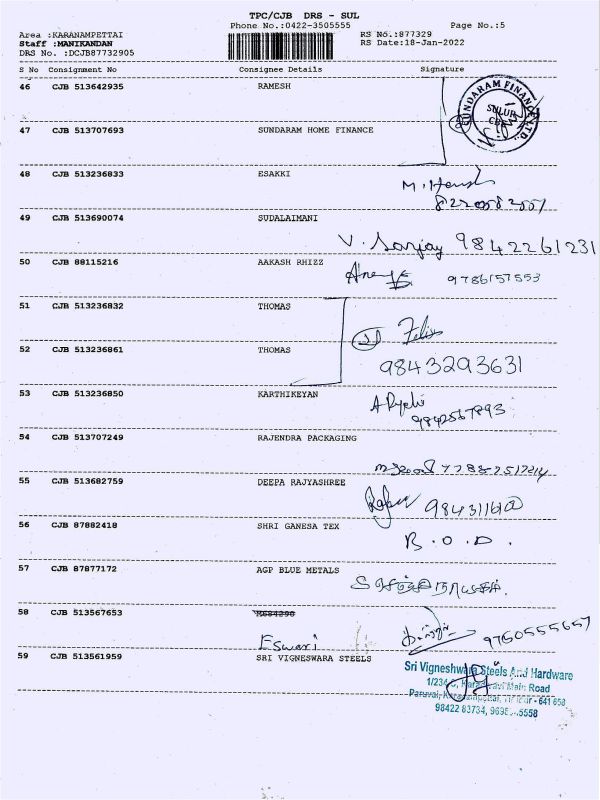 TPC/CJB DRS - SUL
Phone No.:0422-3505555 Page No.:5
Area :KARANAMPETTAI RS No.:877329
Staff :MANIKANDAN RS Date:18-Jan-2022
DRS No. :DCJB87732905
S No Consignment No Consignee Details Signature
46 CJB 513642935 RAMESH
SUNDARAM FINANCE LTD.
SULUR
47 CJB 513707693 SUNDARAM HOME FINANCE
48 CJB 513236833 ESAKKI
49 CJB 513690074 SUDALAIMANI
V. Sanjay 9842261231
50 CJB 88115216 AAKASH RHIZZ
9786157553
51 CJB 513236832 THOMAS
Felix
52 CJB 513236861 THOMAS
9843293631
53 CJB 513236850 KARTHIKEYAN
54 CJB 513707249 RAJENDRA PACKAGING
55 CJB 513682759 DEEPA RAJYASHREE
56 CJB 87882418 SHRI GANESA TEX
B.O.D.
57 CJB 87877172 AGP BLUE METALS
58 CJB 513567653
Eswari 9750555657
59 CJB 513561959 SRI VIGNESWARA STEELS
Sri Vigneshwara Steels And Hardware
1/234 Main Road
Paruvai, - 641 658
98422 83734,